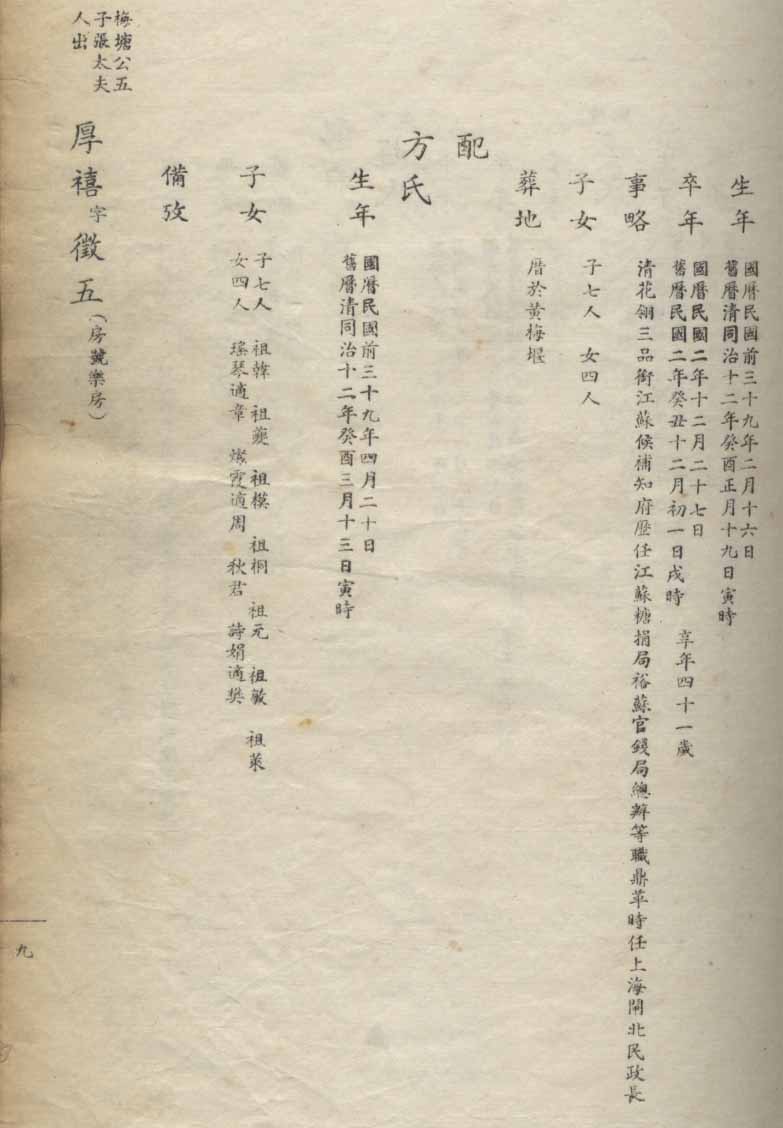 生年
國曆民國前三十九年二月十六日
舊曆清同治十二年癸酉正月十九日寅時
卒年
國曆民國二年十二月二十七日
舊曆民國二年癸丑十二月初一日戌時 享年四十一歲
事略 清花翎三品銜江蘇候補知府歷任江蘇糖捐局裕蘇官錢局總辦等職鼎革時任上海閘北民政長
子女 子七人 女四人
葬地 厝於黃梅堰
配
方氏
生年
國曆民國前三十九年四月二十日
舊曆清同治十二年癸酉三月十三日寅時
子女
子七人 祖韓 祖夔 祖模 祖桐 祖元 祖敏 祖萊
女四人 瑤琴適章 燦霞適周 秋君 詩娟適樊
備攷
梅塘公五
子張太夫
人出
厚禧字徵五(房號樂房)
九